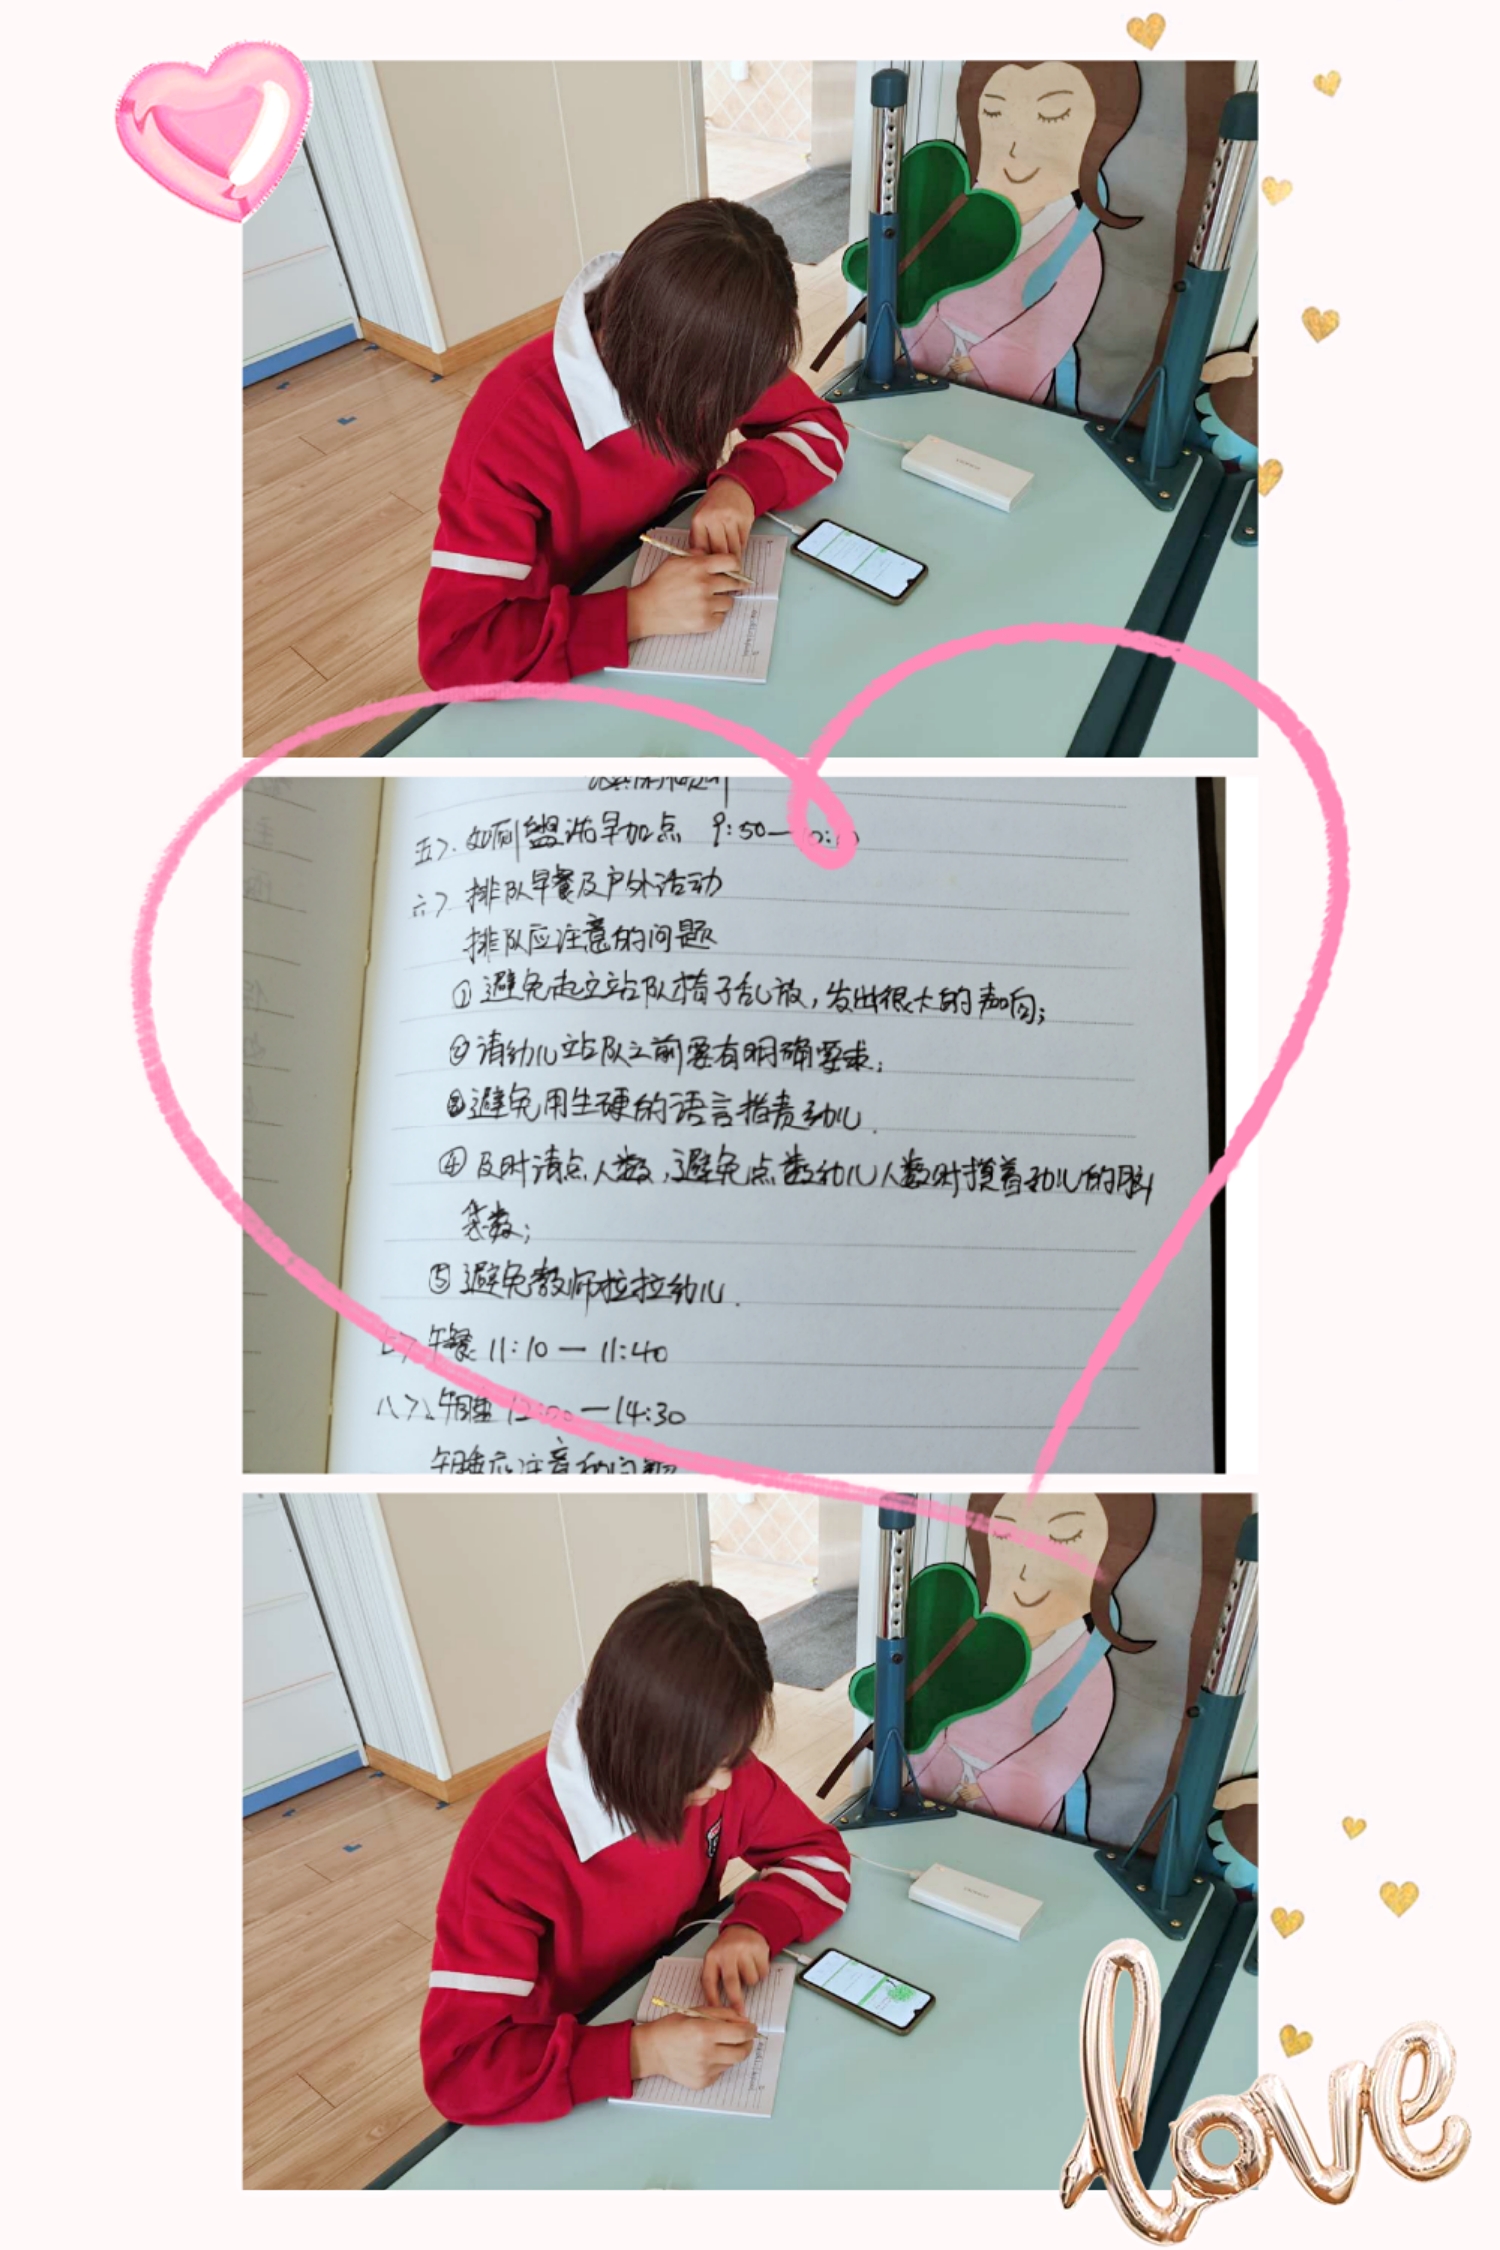 五>、如何盥洗早加点 9:50—
六> 排队早餐及户外活动
排队应注意的问题
①避免起立站队椅子乱放，发出很大的声向；
②请幼儿站队之前要有明确要求；
③避免用生硬的语言指责幼儿.
④及时清点人数，避免点数幼儿人数时摸着幼儿的脑
袋数；
⑤避免教师拉拉幼儿.
七>午餐 11:10 — 11:40
八>、午睡 12:00 — 14:30
午睡应注意的问题
love